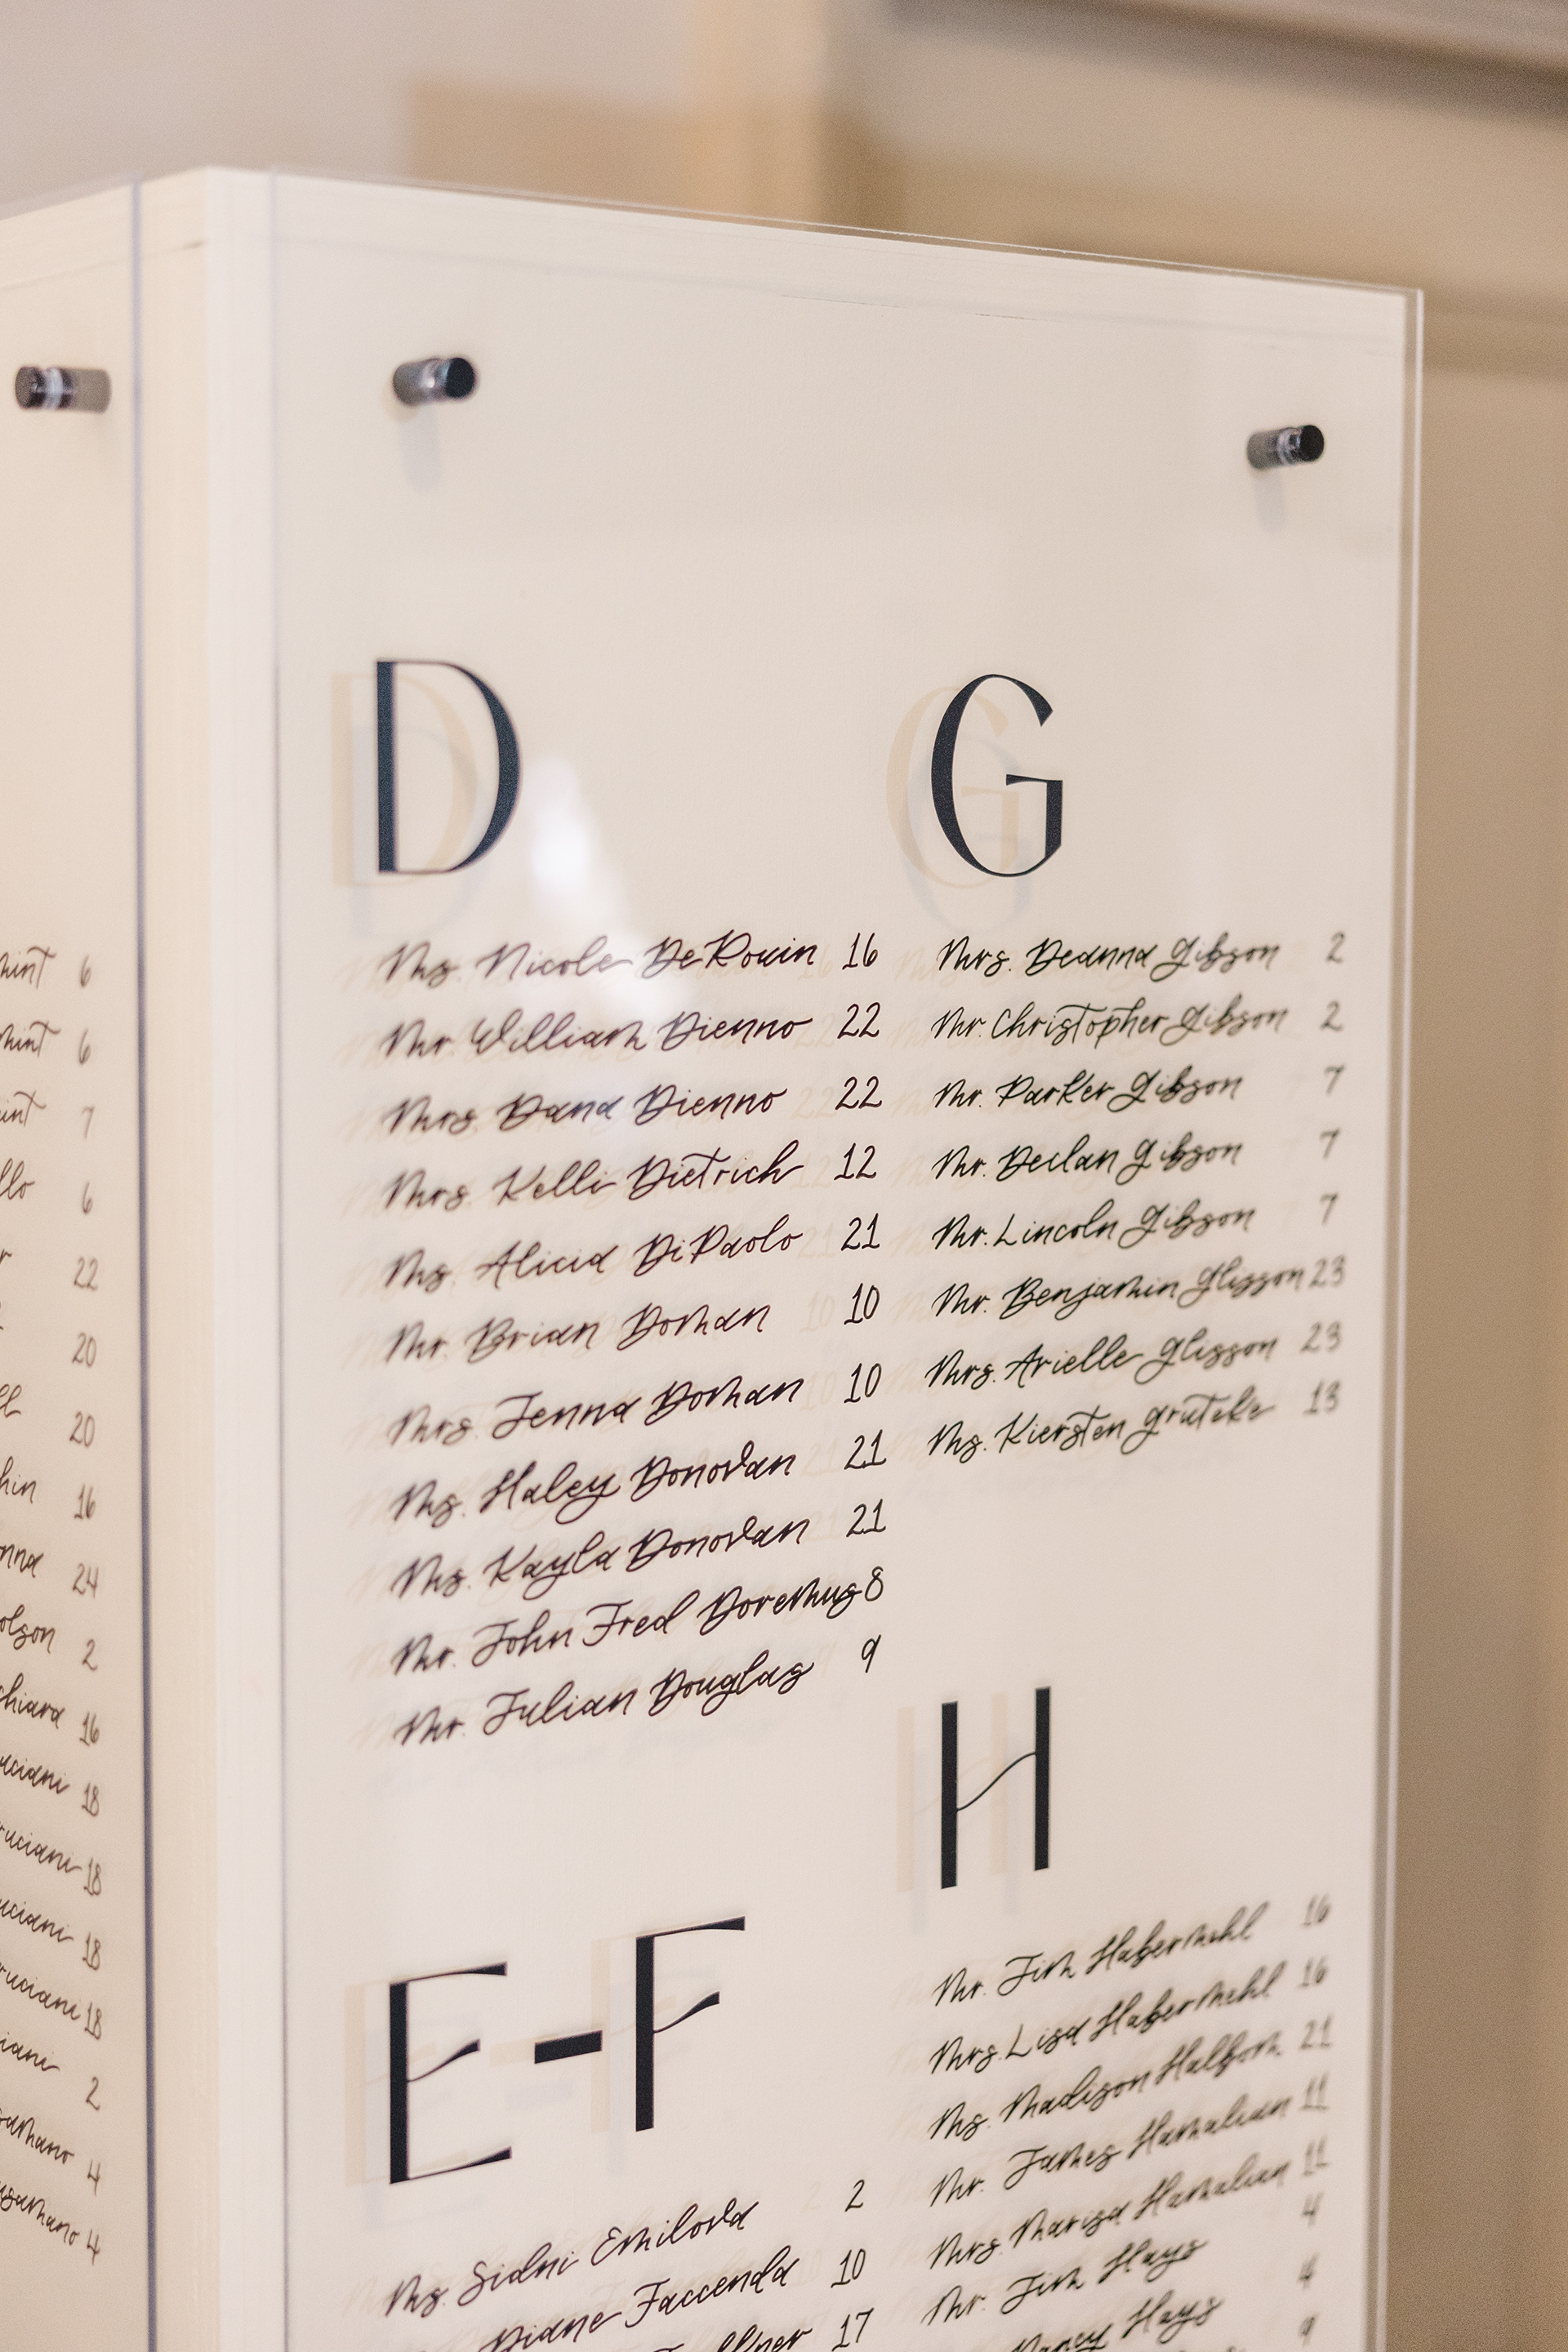 6
6
7
6
22
20
20
16
24
2
16
18
18
18
18
2
4
4
D
Ms. Nicole DeRouin 16
Mr. William Dienno 22
Mrs. Dana Dienno 22
Mrs. Kelli Dietrich 12
Ms. Alicia DiPaolo 21
Mr. Brian Dorman 10
Mrs. Jenna Dorman 10
Ms. Haley Donovan 21
Ms. Kayla Donovan 21
Mr. John Fred Doremus 8
Mr. Julian Douglas 9
E-F
Ms. Sidni Emilova 2
Diane Faccenda 10
17
G
Mrs. Deanna Gibson 2
Mr. Christopher Gibson 2
Mr. Parker Gibson 7
Mr. Declan Gibson 7
Mr. Lincoln Gibson 7
Mr. Benjamin Glisson 23
Mrs. Arielle Glisson 23
Ms. Kiersten Gruteke 13
H
Mr. Jim Habermehl 16
Mrs. Lisa Habermehl 16
Ms. Madison Halborn 21
Mr. James Hamalian 11
Mrs. Marisa Hamalian 11
Mr. Jim Hays 4
Hays 4
9